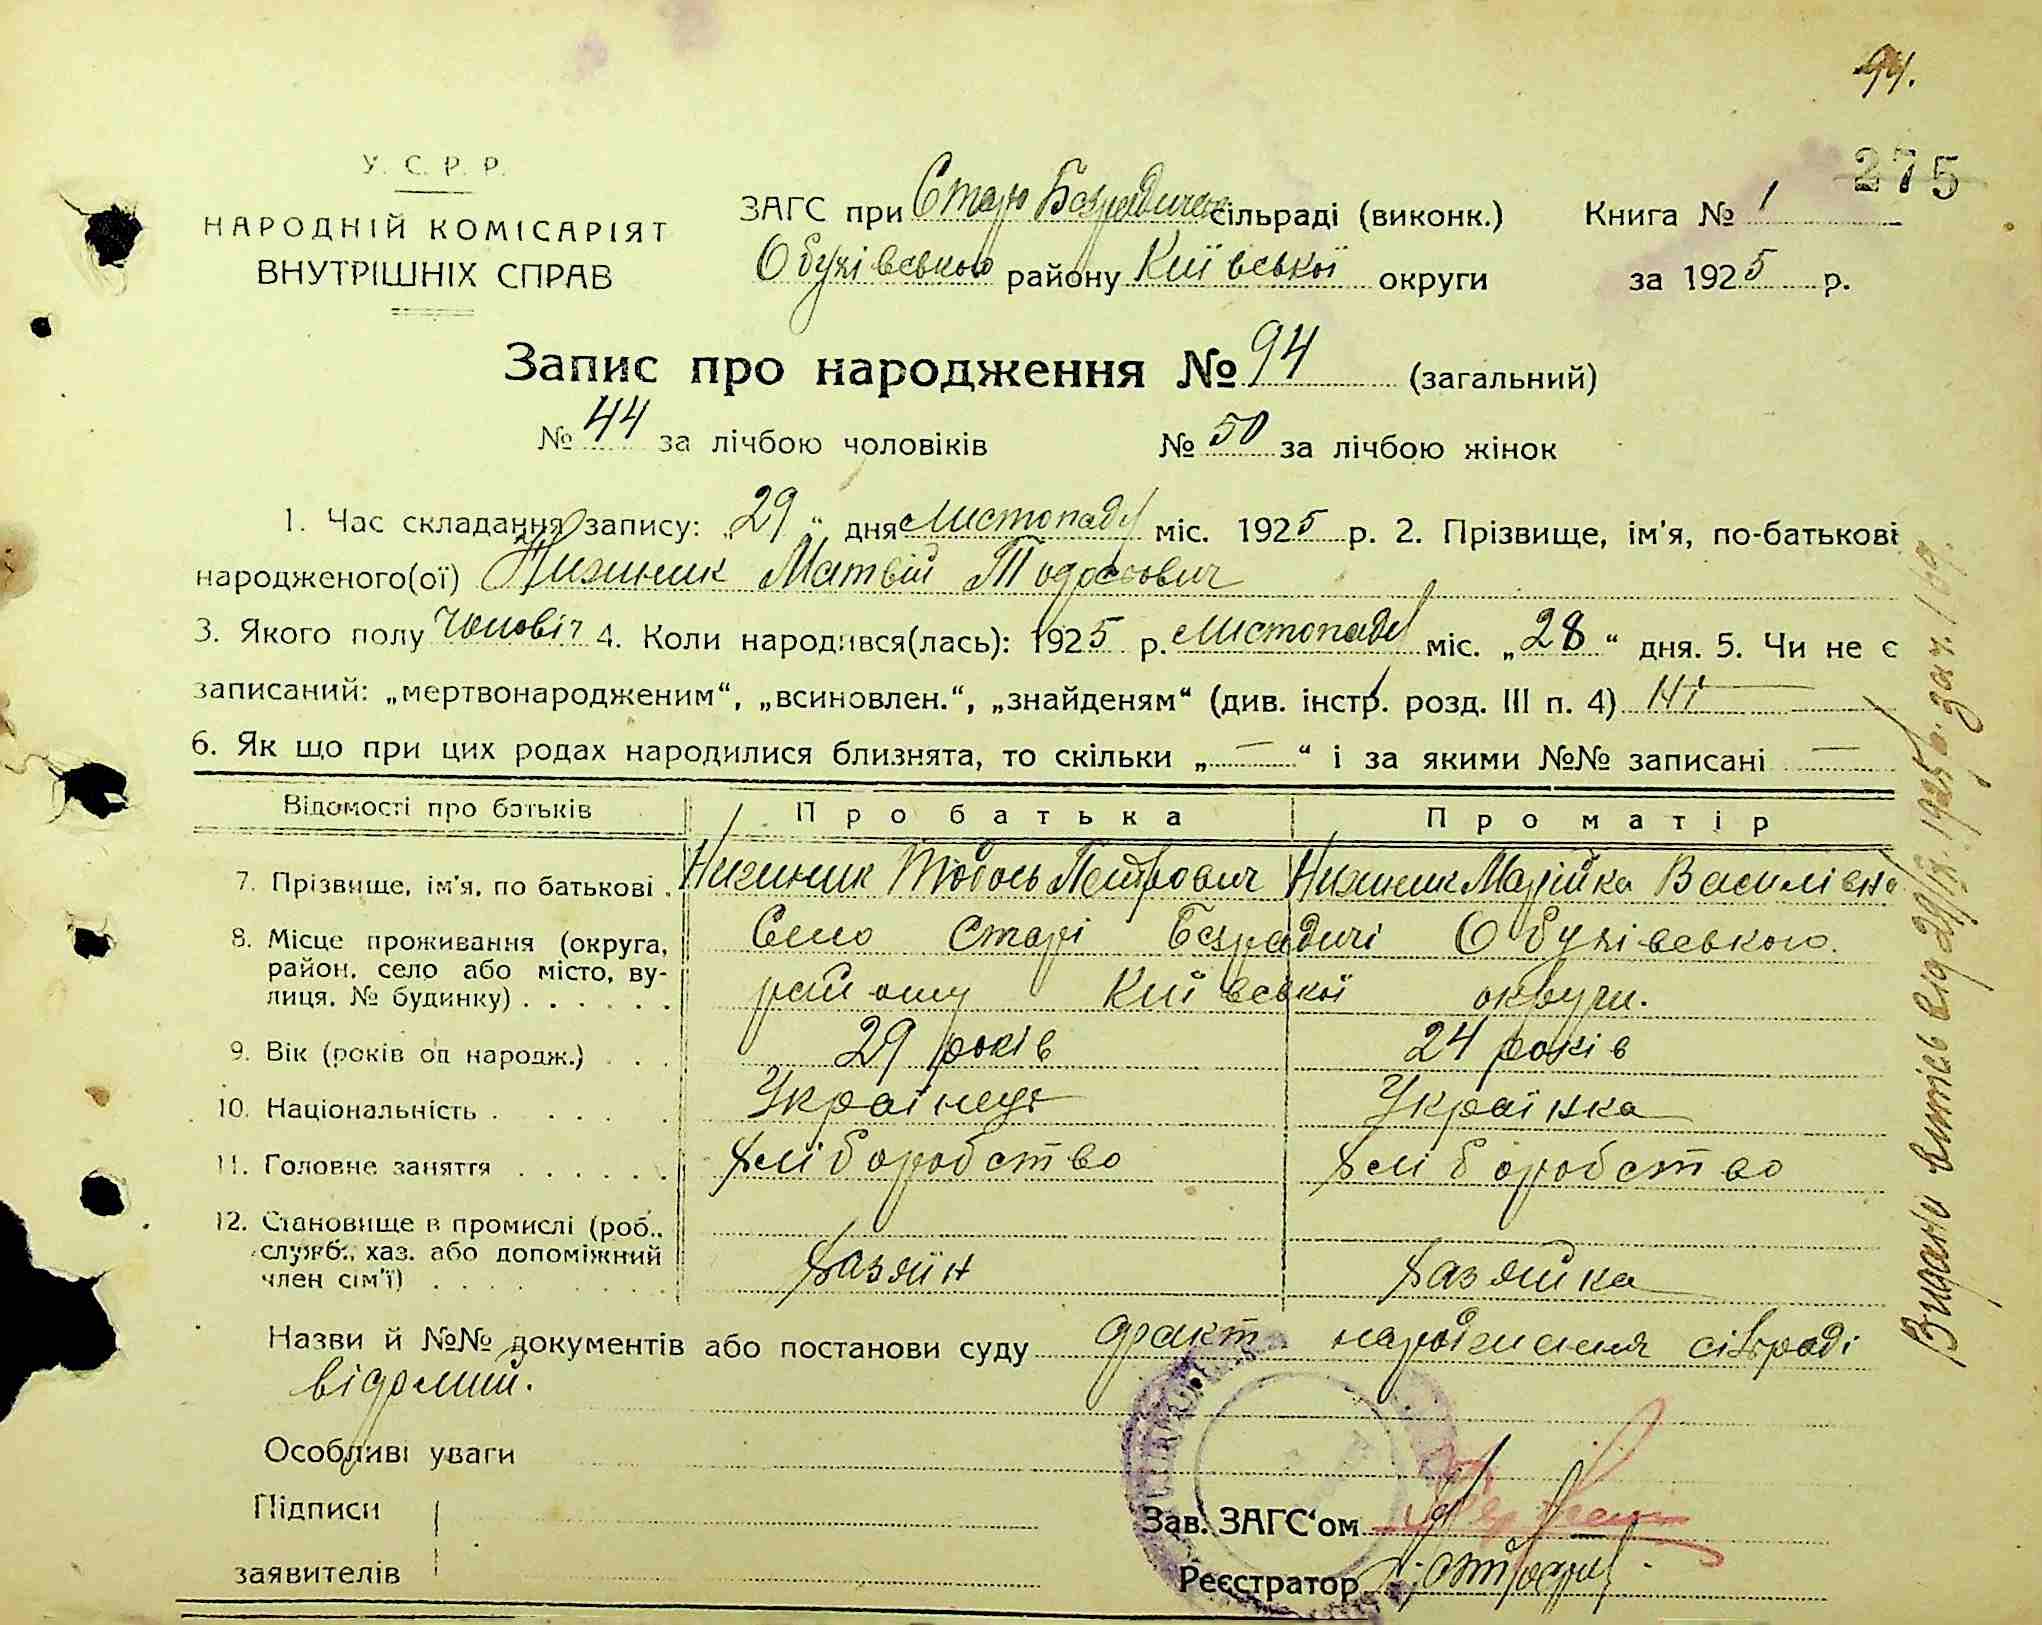 94.
275
У. С. Р. Р.
НАРОДНІЙ КОМІСАРІЯТ
ВНУТРІШНІХ СПРАВ
ЗАГС при Старо Безрадичан сільраді (виконк.)
Обухівського району Київської округи
Книга № 1
за 1925 р.
Запис про народження № 94 (загальний)
№ 44 за лічбою чоловіків № 50 за лічбою жінок
1. Час складання запису: „29“ дня листопаду міс. 1925 р. 2. Прізвище, ім'я, по-батькові
народженого(ої) Нижник Матвій Тодосьович
3. Якого полу чоловіч 4. Коли народився(лась): 1925 р. листопаду міс. „28“ дня. 5. Чи не є
записаний: „мертвонародженим“, „всиновлен.“, „знайденям“ (див. інстр. розд. III п. 4) Ні
6. Як що при цих родах народилися близнята, то скільки „—“ і за якими №№ записані —
Відомості про батьків Про батька Про матір
7. Прізвище, ім'я, по батькові . Нижник Тодось Петрович Нижник Марійка Василівна
8. Місце проживання (округа, Село Старі Безрадичі Обухівського
район, село або місто, ву-
лиця, № будинку) . . . . . . району Київської округи.
9. Вік (років од народж.) . . . 29 років 24 років
10. Національність . . . . . Українець Українка
11. Головне заняття . . . . . . Хліборобство Хліборобство
12. Становище в промислі (роб.,
служб., хаз. або допоміжний
член сім'ї) . . . . . Хазяїн Хазяйка
Назви й №№ документів або постанови суду факт народження сільраді
відомий.
Особливі уваги
Підписи
заявителів
Зав. ЗАГС'ом
Реєстратор
Видано витяг від 29/XI 1925 р. за ч. 169.